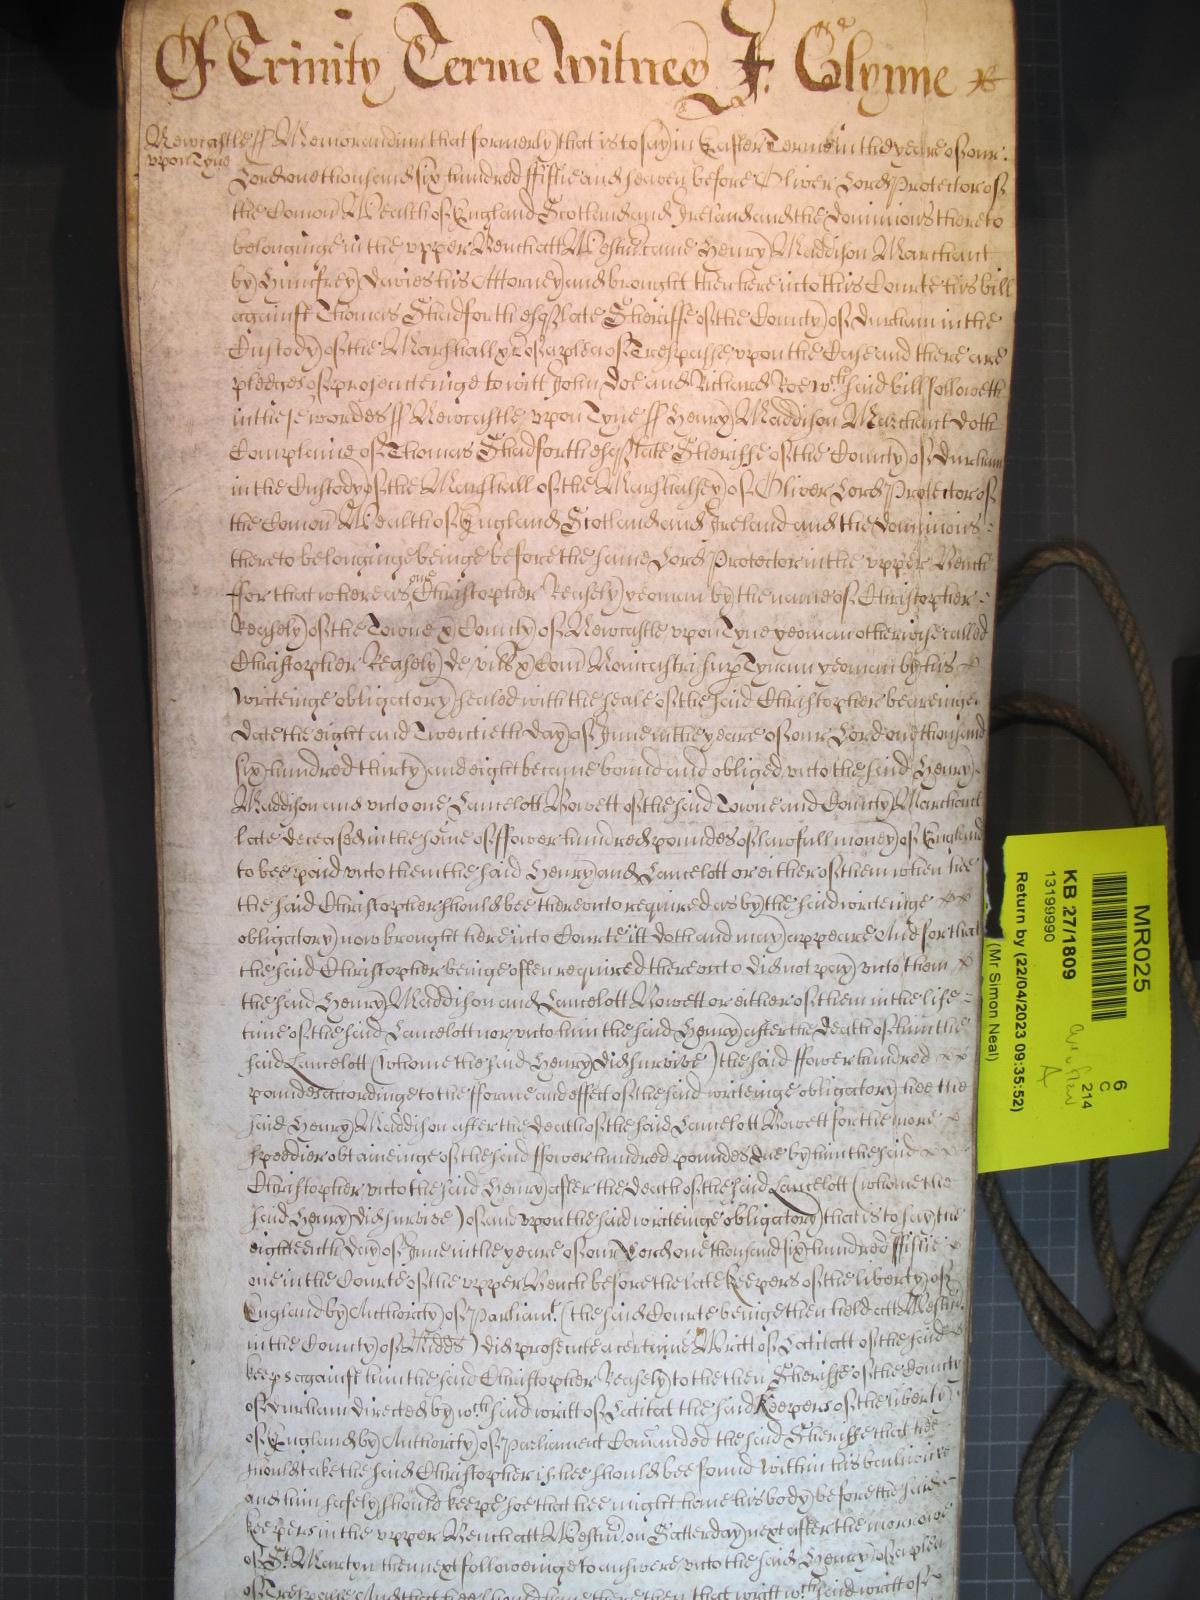 Of Trinity Terme Witnes J. Glynne
Newcastle ss Memorandum that formerly that is to say in Easter Terme in the yeare of our
upon Tyne
Lord one thousand six hundred ffiftie and seaven before Oliver Lord Protector of
the Comon Wealth of England Scotland and Ireland and the Dominions thereto
belonginge in the upper Bench att Westm. came Henry Maddison Marchant
by Humfrey Davies his Attorney and brought then here into this Courte his bill
against Thomas Shadforth esqr late Sheriffe of the County of Durham in the
Custody of the Marshall &c of a plea of Trespasse upon the Case and there are
pledges of prosecuteinge to witt John Doe and Richard Roe wch said bill followeth
in these wordes ss Newcastle upon Tyne ss Henry Maddison Marchant doth
Complaine of Thomas Shadforth esqr late Sheriffe of the County of Durham
in the Custody of the Marshall of the Marshalsey of Oliver Lord Protector of
the Comon Wealth of England Scotland and Ireland and the Dominions
thereto belonginge beinge before the same Lord Protector in the upper Bench
ffor that whereas one Christopher Keasely yeoman by the name of Christopher
Keasely of the Towne & County of Newcastle upon Tyne yeoman otherwise called
Christopher Keasely de vill & Com Novicastri sup Tynam yeoman by his
writeinge obligatory sealed with the seale of the said Christopher beareinge
date the eight and Twentieth day of June in the yeare of our Lord one thousand
six hundred thirty and eight became bound and obliged unto the said Henry
Maddison and unto one Lancelott Bowett of the said Towne and County Marchant
late deceased in the some of ffower hundred poundes of lawfull money of England
to bee paid unto them the said Henry and Lancelott or either of them when hee
the said Christopher should bee thereonto required as by the said writeinge
obligatory now brought here into Courte itt doth and may appeare And for that
the said Christopher beinge often required thereonto did not pay unto them
the said Henry Maddison and Lancelott Bowett or either of them in the life
time of the said Lancelott nor unto him the said Henry after the death of him the
said Lancelott (whome the said Henry did survive) the said ffower hundred
poundes accordinge to the fforme and effect of the said writeinge obligatory hee the
said Henry Maddison after the death of the said Lancelott Bowett for the more
speddier obtaineinge of the said ffower hundred poundes due by him the said
Christopher unto the said Henry after the death of the said Lancelott (whome the
said Henry did survive) of and upon the said writeinge obligatory that is to say the
eighteenth day of June in the yeare of our Lord one thousand six hundred ffiftie
one in the Courte of the upper Bench before the late Keepers of the liberty of
England by Authority of Parliamt. (the said Courte beinge then held att Westm.
in the County of Midds) did prosecute a certaine Writt of Latitatt of the said
keeps against him the said Christopher Keasely to the then Sheriffe of the County
of Durham directed by wch said writt of Latitat the said Keepers of the liberty
of England by Authority of Parliament Comanded the said Sheriffe that hee
should take the said Christopher if hee should bee found within his bailiwicke
and him safely should keepe soe that hee might have his body before the said
keepers in the upper Bench att Westm. on Satterday next after the morrowe
of St. Martyn then next followeinge to answere unto the said Henry of a plea
of Trespasse And that hee should have there then that writt wch said writt of
MR025
KB 27/1809
13199990
Return by (22/04/2023 09:35:52)
(Mr Simon Neal)
6
C
214
A